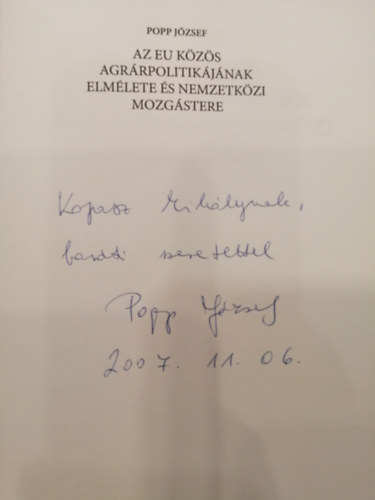 POPP JÓZSEF
AZ EU KÖZÖS
AGRÁRPOLITIKÁJÁNAK
ELMÉLETE ÉS NEMZETKÖZI
MOZGÁSTERE
Kopasz Mihálynak,
baráti szeretettel
Popp József
2007. 11. 06.